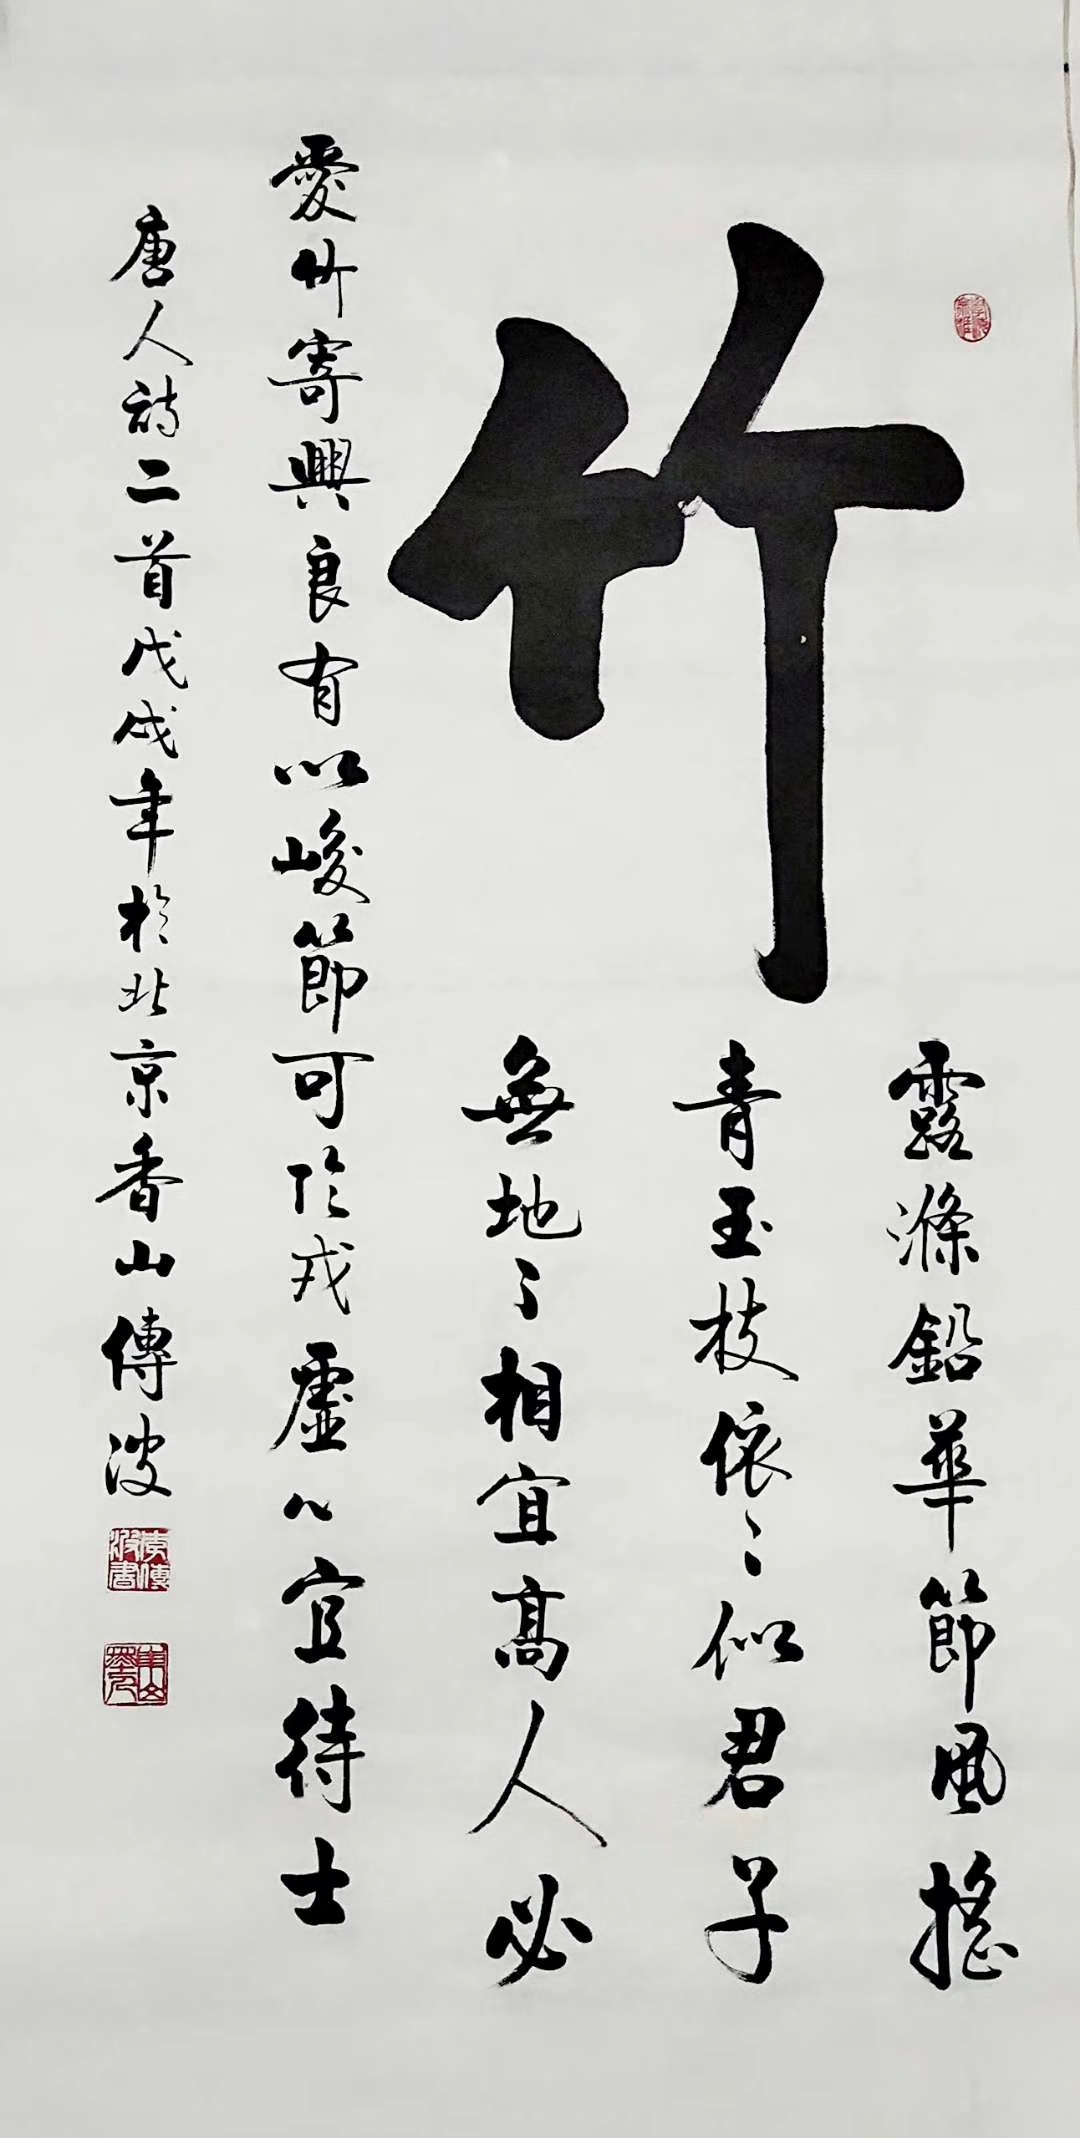 竹
露滌鉛華節風搖
青玉枝依〻似君子
無地不相宜高人必
愛竹寄興良有以峻節可臨戎虛心宜待士
唐人詩二首戊戌年於北京香山傳波